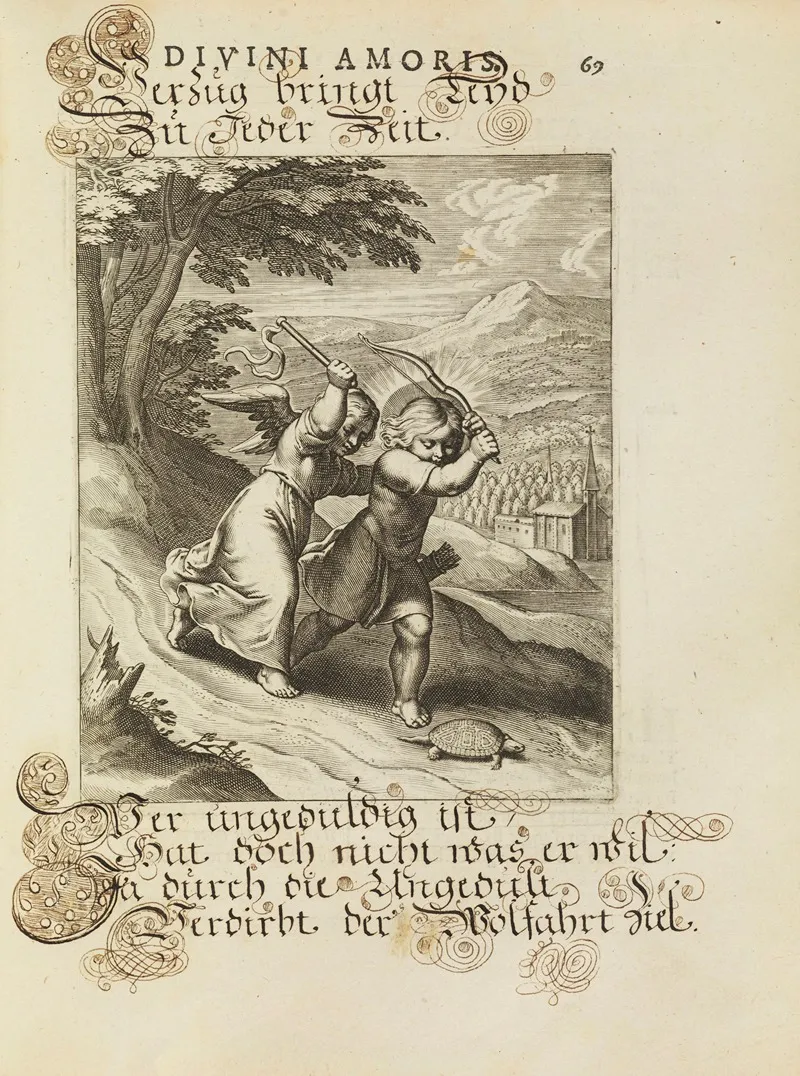 DIVINI AMORIS.
69
Verzug bringt Leyd
Zu Jeder Zeit.
Wer ungeduldig ist,
Hat doch nicht was er wil:
Ja durch die Ungedult
Verdirbt der Wolfahrt ziel.